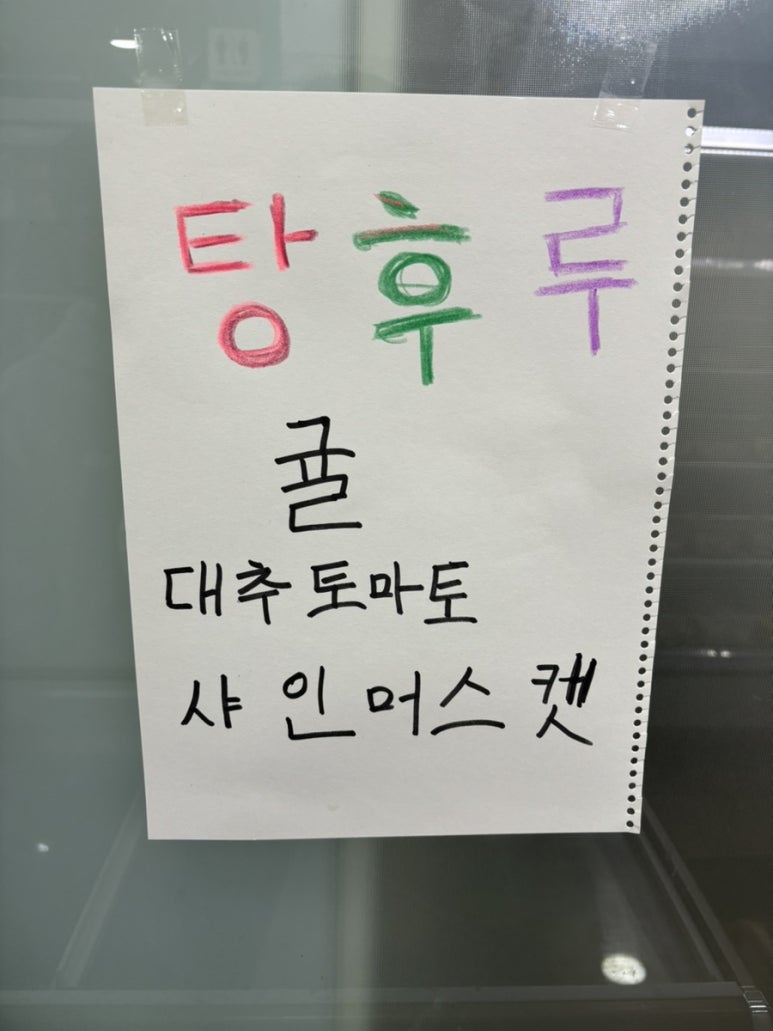 탕후루
귤
대추토마토
샤인머스캣